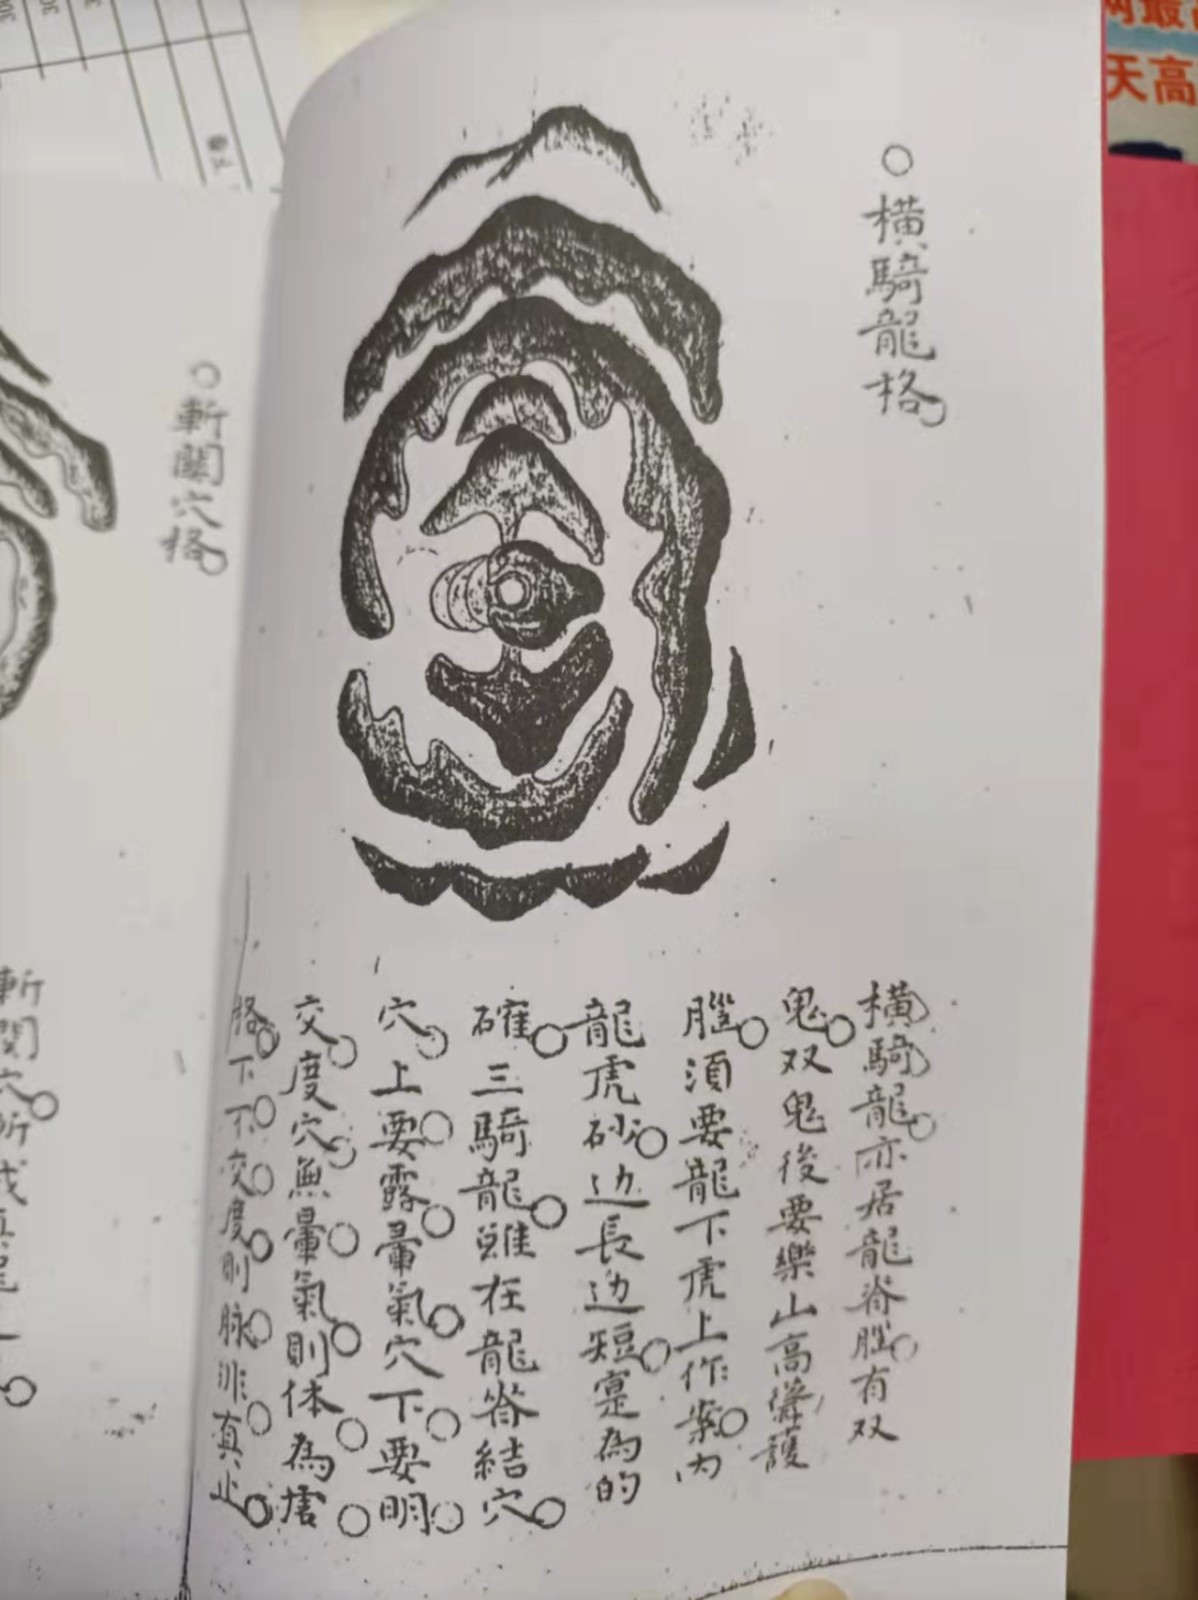 橫騎龍格
橫騎龍亦居龍脊腦有双
鬼双鬼後要樂山高聳護
腦須要龍下虎上作案內
龍虎砂边長边短寔為的
確三騎龍雖在龍脊結穴
穴上要露暈氣穴下要明
交度穴無暈氣則体為虛
格下不交度則脉非真止
斬關穴格
斬関穴所成
天高